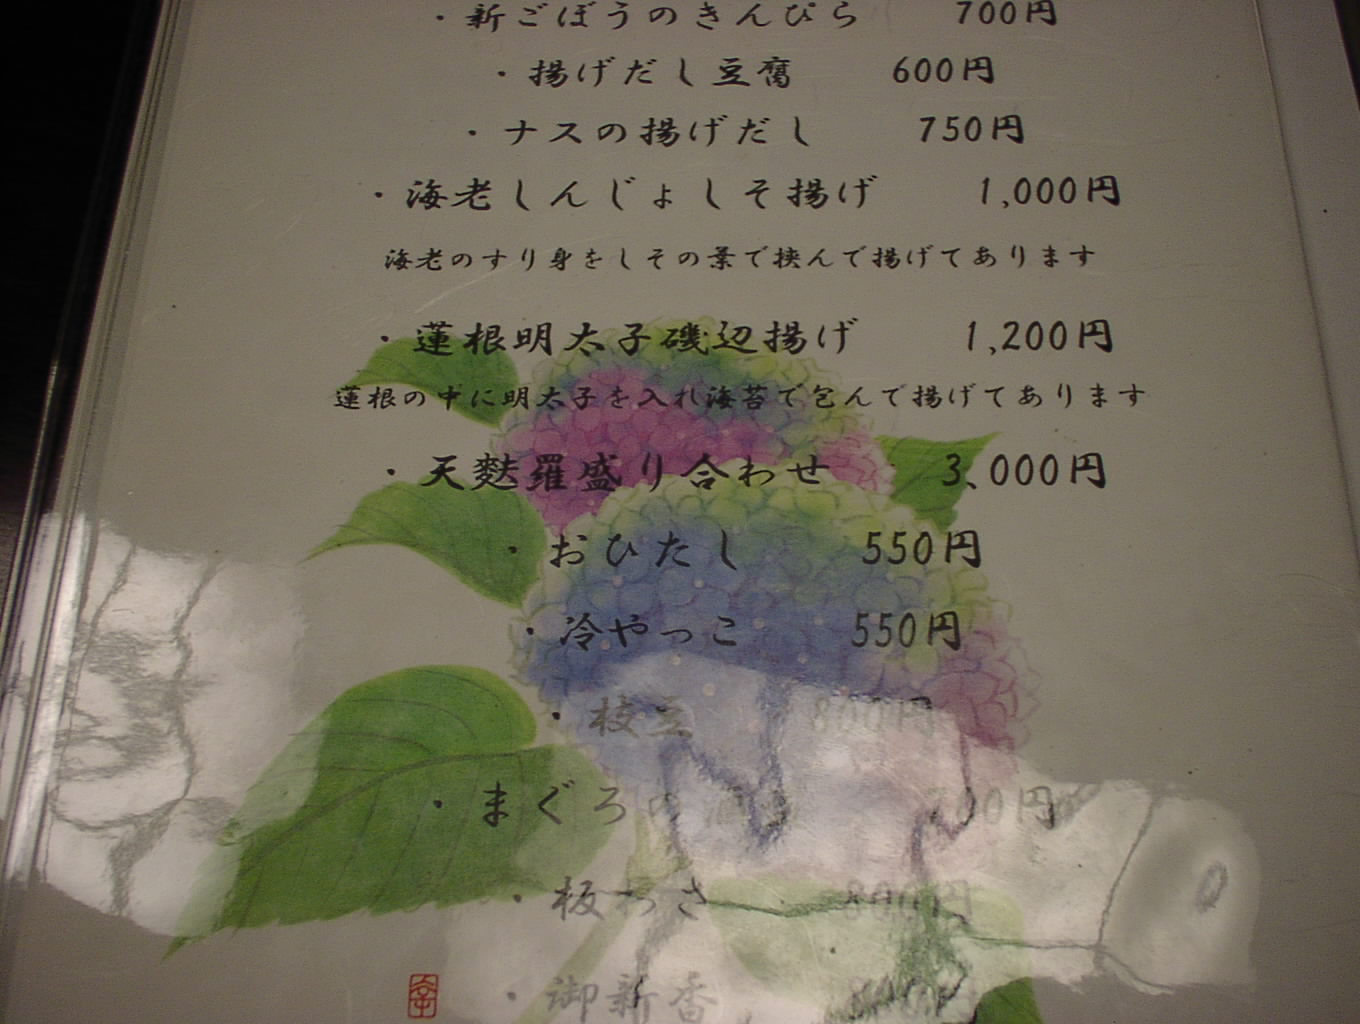 ・新ごぼうのきんぴら 700円
・揚げだし豆腐 600円
・ナスの揚げだし 750円
・海老しんじょしそ揚げ 1,000円
海老のすり身をしその葉で挟んで揚げてあります
・蓮根明太子磯辺揚げ 1,200円
蓮根の中に明太子を入れ海苔で包んで揚げてあります
・天麩羅盛り合わせ 3、000円
・おひたし 550円
・冷やっこ 550円
・枝豆 800円
・まぐろの 700円
・板わさ 800円
・御新香 800円